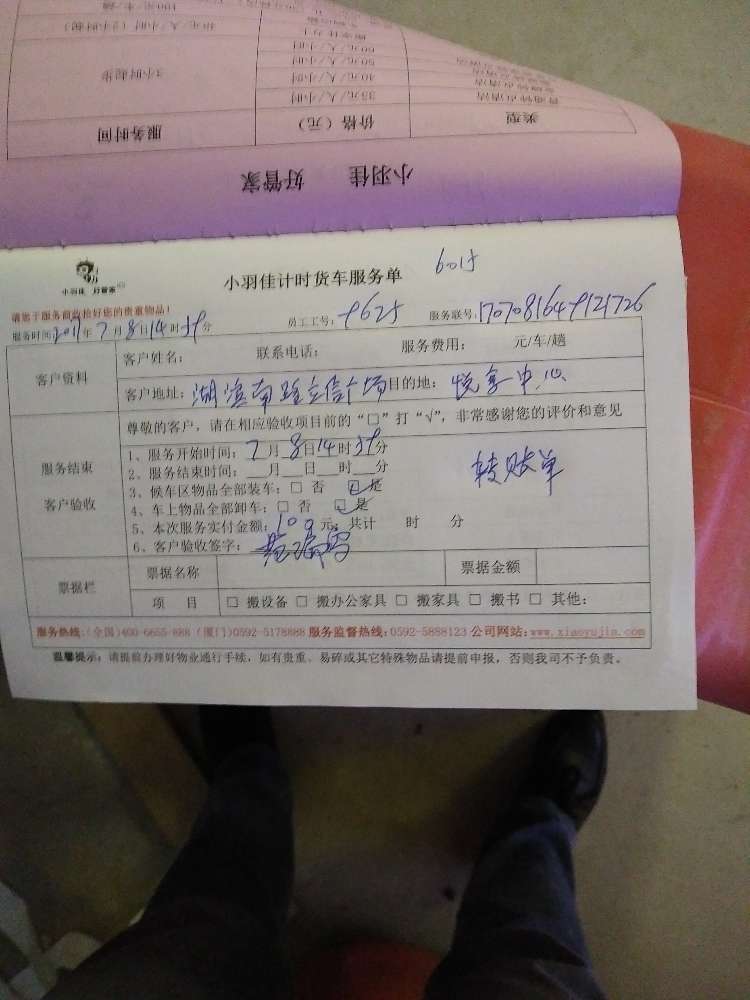 小羽佳 好管家
类型 价格（元） 服务时间
普通钟点清洁 35元/人/小时 3小时起步
40元/人/小时
50元/人/小时
60元/人/小时
小羽佳 好管家
小羽佳计时货车服务单 6015
请您于服务前收拾好您的贵重物品！
服务时间:2017年7月8日14时39分 员工工号: 9625 服务联号:1707081649121726
客户资料
客户姓名: 联系电话: 服务费用: 元/车/趟
客户地址: 湖滨南路立信广场 目的地: 悦享中心
服务结束
客户验收
尊敬的客户，请在相应验收项目前的“□”打“√”，非常感谢您的评价和意见
1、服务开始时间: 7月8日14时39分
2、服务结束时间: 月 日 时 分
转账单
3、候车区物品全部装车: □ 否 ☑ 是
4、车上物品全部卸车: □ 否 ☑ 是
5、本次服务实付金额: 100元，共计 时 分
6、客户验收签字:
票据栏
票据名称 票据金额
项 目 □ 搬设备 □ 搬办公家具 □ 搬家具 □ 搬书 □ 其他:
服务热线:(全国)400-6655-888 (厦门)0592-5178888 服务监督热线:0592-5888123 公司网站:www.xiaoyujia.com
温馨提示: 请提前办理好物业通行手续，如有贵重、易碎或其它特殊物品请提前申报，否则我司不予负责。